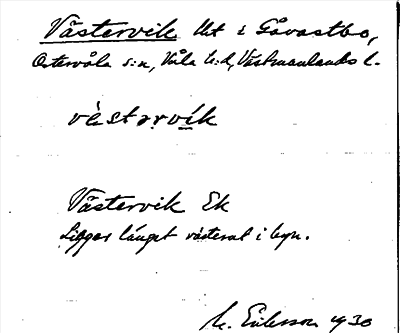 Västervik Ut i Gåvastbo,
Östervåla s:n, Våla h:d, Västmanlands l.
vèstərvík
Västervik Ek
Ligger längst västerut i byn.
M. Eriksson 1930